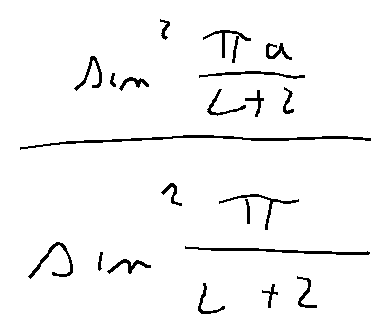 sin² πa
L+2
sin² π
L+2